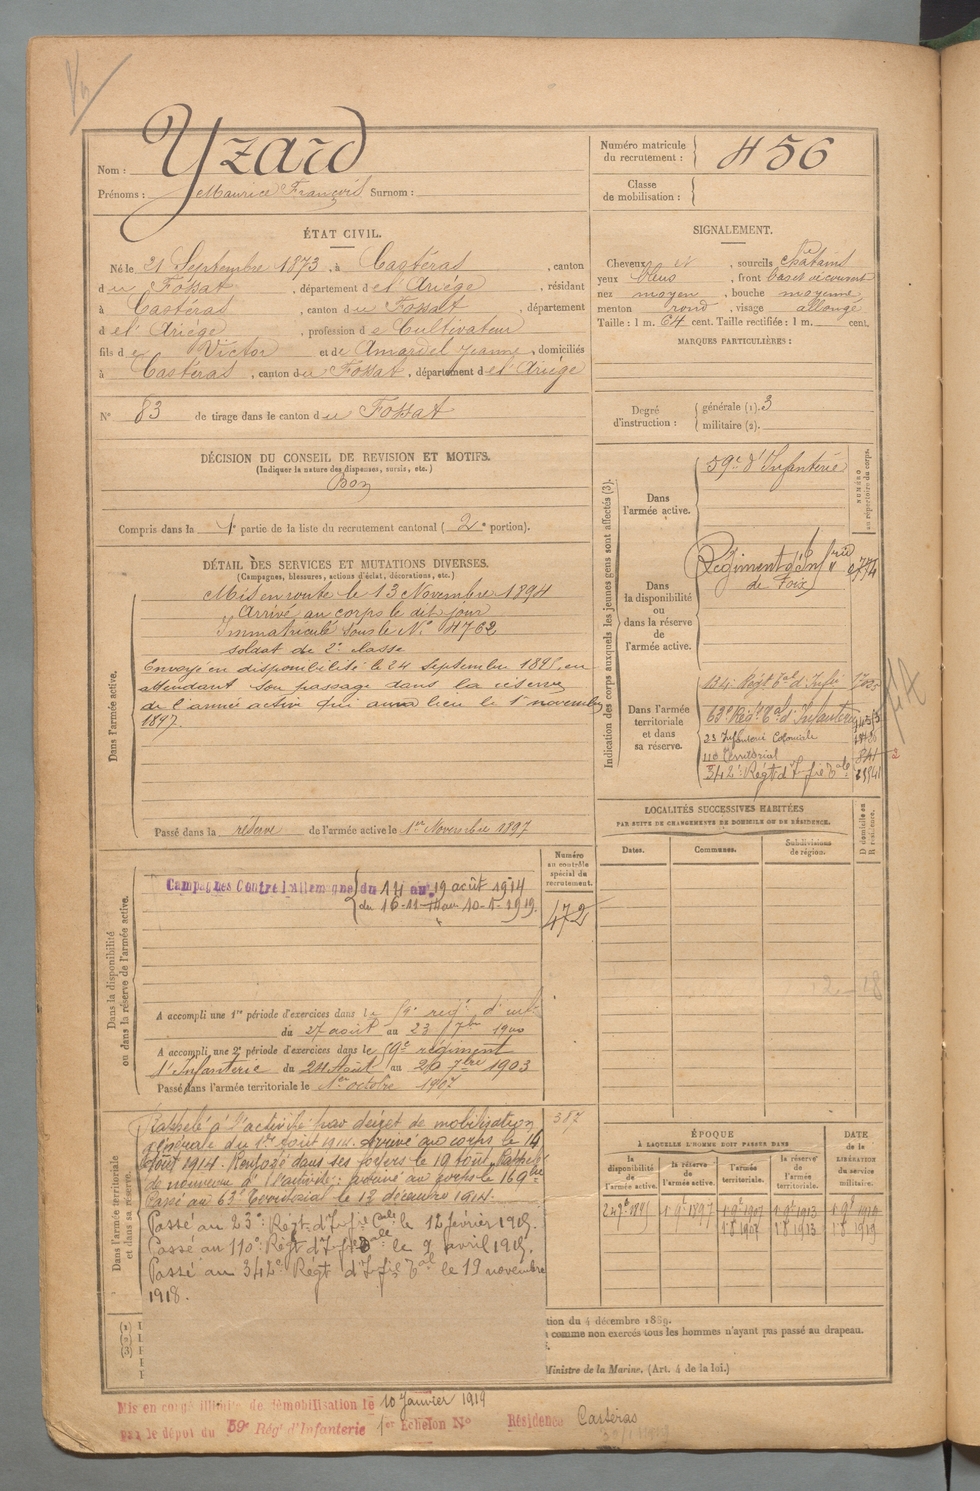 Nom : Yzard
Prénoms : Maurice François Surnom :
ÉTAT CIVIL.
Né le 21 Septembre 1873, à Castéras, canton
du Fossat, département de l'Ariège, résidant
à Castéras, canton du Fossat, département
de l'Ariège, profession de Cultivateur
fils de Victor et de Amardel Jeanne, domiciliés
à Castéras, canton du Fossat, département de l'Ariège
N° 83 de tirage dans le canton du Fossat
DÉCISION DU CONSEIL DE REVISION ET MOTIFS.
(Indiquer la nature des dispenses, sursis, etc.)
Bon
Compris dans la 1e partie de la liste du recrutement cantonal (2e portion).
DÉTAIL DES SERVICES ET MUTATIONS DIVERSES.
(Campagnes, blessures, actions d'éclat, décorations, etc.)
Dans l'armée active.
Mis en route le 13 Novembre 1894
Arrivé au corps le dit jour
Immatriculé sous le N° 4762
soldat de 2e classe
Envoyé en disponibilité le 24 septembre 1895 en
attendant son passage dans la réserve
de l'armée active qui aura lieu le 1 novembre
1897.
Passé dans la réserve de l'armée active le 1er Novembre 1897
Dans la disponibilité
ou dans la réserve de l'armée active.
Campagnes Contre l'allemagne du 14 au 19 août 1914
du 16-11-14 au 10-1-1919.
Numéro
au contrôle
spécial du
recrutement.
472
A accompli une 1re période d'exercices dans le
du 27 août au 23 7bre 1900
A accompli une 2e période d'exercices dans le 59e régiment
d'Infanterie du 24 Août au 20 7bre 1903
Passé dans l'armée territoriale le 1er octobre 1907
Dans l'armée territoriale
et dans sa réserve.
387
Rappelé à l'activité par décret de mobilisation
générale du 1er Août 1914. Arrivé au corps le 14
Août 1914. Renvoyé dans ses foyers le 19 Août. Rappelé
de nouveau à l'activité; arrivé au corps le 16 9bre
Passé au 63e Territorial le 13 décembre 1914.
Passé au 23e Régt d'Inf le 12 février 1918.
Passé au 110e Régt d'Inf le 9 avril 1918.
Passé au 342e Régt d'Inf le 19 novembre
1918.
Numéro matricule
du recrutement : 456
Classe
de mobilisation :
SIGNALEMENT.
Cheveux et, sourcils Châtains
yeux bleus, front bas et découvert
nez moyen, bouche moyenne
menton rond, visage allongé
Taille : 1 m. 64 cent. Taille rectifiée : 1 m. cent.
MARQUES PARTICULIÈRES :
Degré
d'instruction :
générale (1). 3
militaire (2).
Indication des corps auxquels les jeunes gens sont affectés (3).
NUMÉRO
au répertoire du corps.
Dans
l'armée active.
59e d'Infanterie
Dans
la disponibilité
ou
dans la réserve
de
l'armée active.
Régiment d'Infrie
de Foix
Dans l'armée
territoriale
et dans
sa réserve.
134e Régt Tal d'Infie
63e Régt Tal d'Infanterie
23 Infanterie Coloniale
110 Territorial 841
342e Régt d'Infie Tale
LOCALITÉS SUCCESSIVES HABITÉES
PAR SUITE DE CHANGEMENTS DE DOMICILE OU DE RÉSIDENCE.
Dates.
Communes.
Subdivisions
de région.
D domicile ou
R résidence.
ÉPOQUE
À LAQUELLE L'HOMME DOIT PASSER DANS
DATE
de la
LIBÉRATION
du service
militaire.
la
disponibilité
de
l'armée active.
la réserve
de
l'armée active.
l'armée
territoriale.
la réserve
de
l'armée
territoriale.
24 9e 1895 1 9e 1897 1 9e 1907 1 9e 1913 1 9e 1919
1 8 1907 1 8 1913 1 8 1919
tion du 4 décembre 1889.
comme non exercés tous les hommes n'ayant pas passé au drapeau.
Ministre de la Marine. (Art. 4 de la loi.)
(1)
(2)
(3)
Mis en congé illimité de démobilisation le 10 Janvier 1919
par le dépôt du 59e Régt d'Infanterie 1er Echelon N° Résidence Castéras